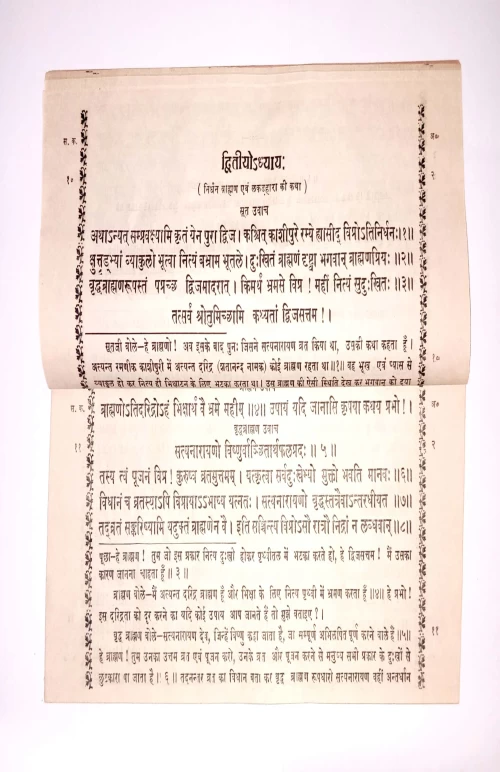 द्वितीयोऽध्यायः
( निर्धन ब्राह्मण एवं लकड़हारा की कथा )
सूत उवाच
स. क.
अ०
अथाऽन्यत् सम्प्रवक्ष्यामि कृतं येन पुरा द्विज । कश्चित् काशीपुरे रम्ये ह्यासीद् विप्रोऽतिनिर्धनः॥१॥
१०
२
क्षुत्तृड्भ्यां व्याकुलो भूत्वा नित्यं बभ्राम भूतले । दुःखितं ब्राह्मणं दृष्ट्वा भगवान् ब्राह्मणप्रियः॥२॥
वृद्धब्राह्मणरूपस्तं पप्रच्छ द्विजमादरात् । किमर्थं भ्रमसे विप्र ! महीं नित्यं सुदुःखितः॥३॥
तत्सर्वं श्रोतुमिच्छामि कथ्यतां द्विजसत्तम ! ।
सूतजी बोले—हे ब्राह्मणो ! अब इसके बाद पुनः जिसने सत्यनारायण व्रत किया था, उसकी कथा कहता हूँ ।
अत्यन्त रमणीक काशीपुरी में अत्यन्त दरिद्र (शतानन्द नामक) कोई ब्राह्मण रहता था॥१॥ वह भूख एवं प्यास से
१०
व्याकुल हो कर नित्य ही भिक्षाटन के लिए भटका करता था । उस ब्राह्मण की ऐसी स्थिति देख कर भगवान् को दया
स. क.
अ०
ब्राह्मणोऽतिदरिद्रोऽहं भिक्षार्थं वै भ्रमे महीम् ॥४॥ उपायं यदि जानासि कृपया कथय प्रभो ! ।
वृद्धब्राह्मण उवाच
११
२
सत्यनारायणो विष्णुर्वाञ्छितार्थफलप्रदः ॥ ५ ॥
तस्य त्वं पूजनं विप्र ! कुरुष्व व्रतमुत्तमम् । यत्कृत्वा सर्वदुःखेभ्यो मुक्तो भवति मानवः॥६॥
विधानं च व्रतस्याऽपि विप्रायाऽऽभाष्य यत्नतः । सत्यनारायणो वृद्धस्तत्रैवाऽन्तरधीयत ॥७॥
तद्व्रतं सङ्करिष्यामि यदुक्तं ब्राह्मणेन वै । इति सञ्चिन्त्य विप्रोऽसौ रात्रौ निद्रां न लब्धवान्॥८॥
पूछा—हे ब्राह्मण ! तुम जो इस प्रकार नित्य दुःखी होकर पृथ्वीतल में भटका करते हो, हे द्विजसत्तम ! मैं उसका
कारण जानना चाहता हूँ ॥ ३ ॥
ब्राह्मण बोले—मैं अत्यन्त दरिद्र ब्राह्मण हूँ और भिक्षा के लिए नित्य पृथ्वी में भ्रमण करता हूँ ॥४॥ हे प्रभो !
इस दरिद्रता को दूर करने का यदि कोई उपाय आप जानते हैं तो मुझे बताइए ! ।
वृद्ध ब्राह्मण बोले—सत्यनारायण देव, जिन्हें विष्णु कहा जाता है, जो सम्पूर्ण अभिलषित पूर्ण करने वाले हैं॥५॥
११
हे ब्राह्मण ! तुम उनका उत्तम व्रत एवं पूजन करो, उनके व्रत और पूजन करने से मनुष्य सभी प्रकार के दुःखों से
छुटकारा पा जाता है ॥ ६ ॥ तदनन्तर व्रत का विधान बता कर वृद्ध ब्राह्मण रूपधारी सत्यनारायण वहीं अन्तर्धान